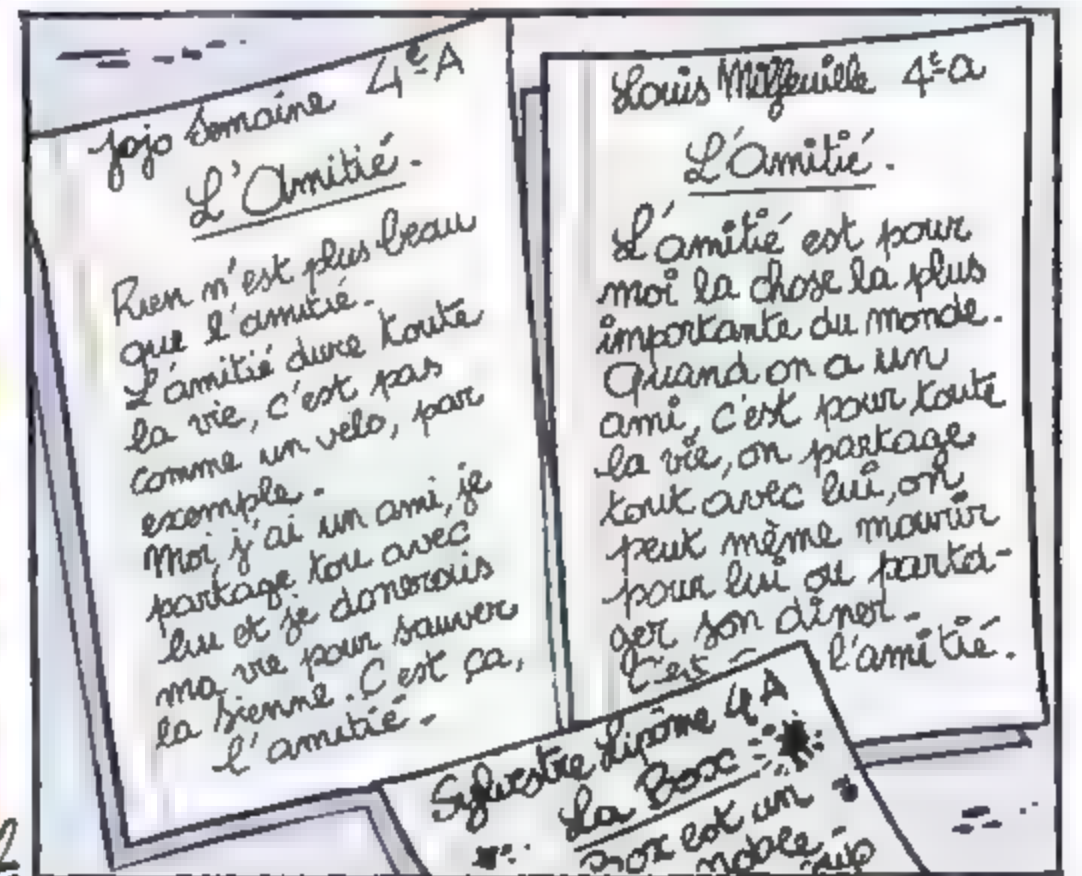 Jojo Semaine 4e A
L'Amitié.
Rien n'est plus beau
que l'amitié.
L'amitié dure toute
la vie, c'est pas
comme un velo, par
exemple.
Moi, j'ai un ami, je
partage tou avec
lui et je donerais
ma vie pour sauver
la sienne. C'est ça,
l'amitié.
Louis Milfeuille 4e a
L'Amitié.
L'amitié est pour
moi la chose la plus
importante du monde.
Quand on a un
ami, c'est pour toute
la vie, on partage
tout avec lui, on
peut même mourir
pour lui ou parta-
ger son dîner.
C'est l'amitié.
Sylvestre Lipôme 4 A
La Boxe
est un
noble